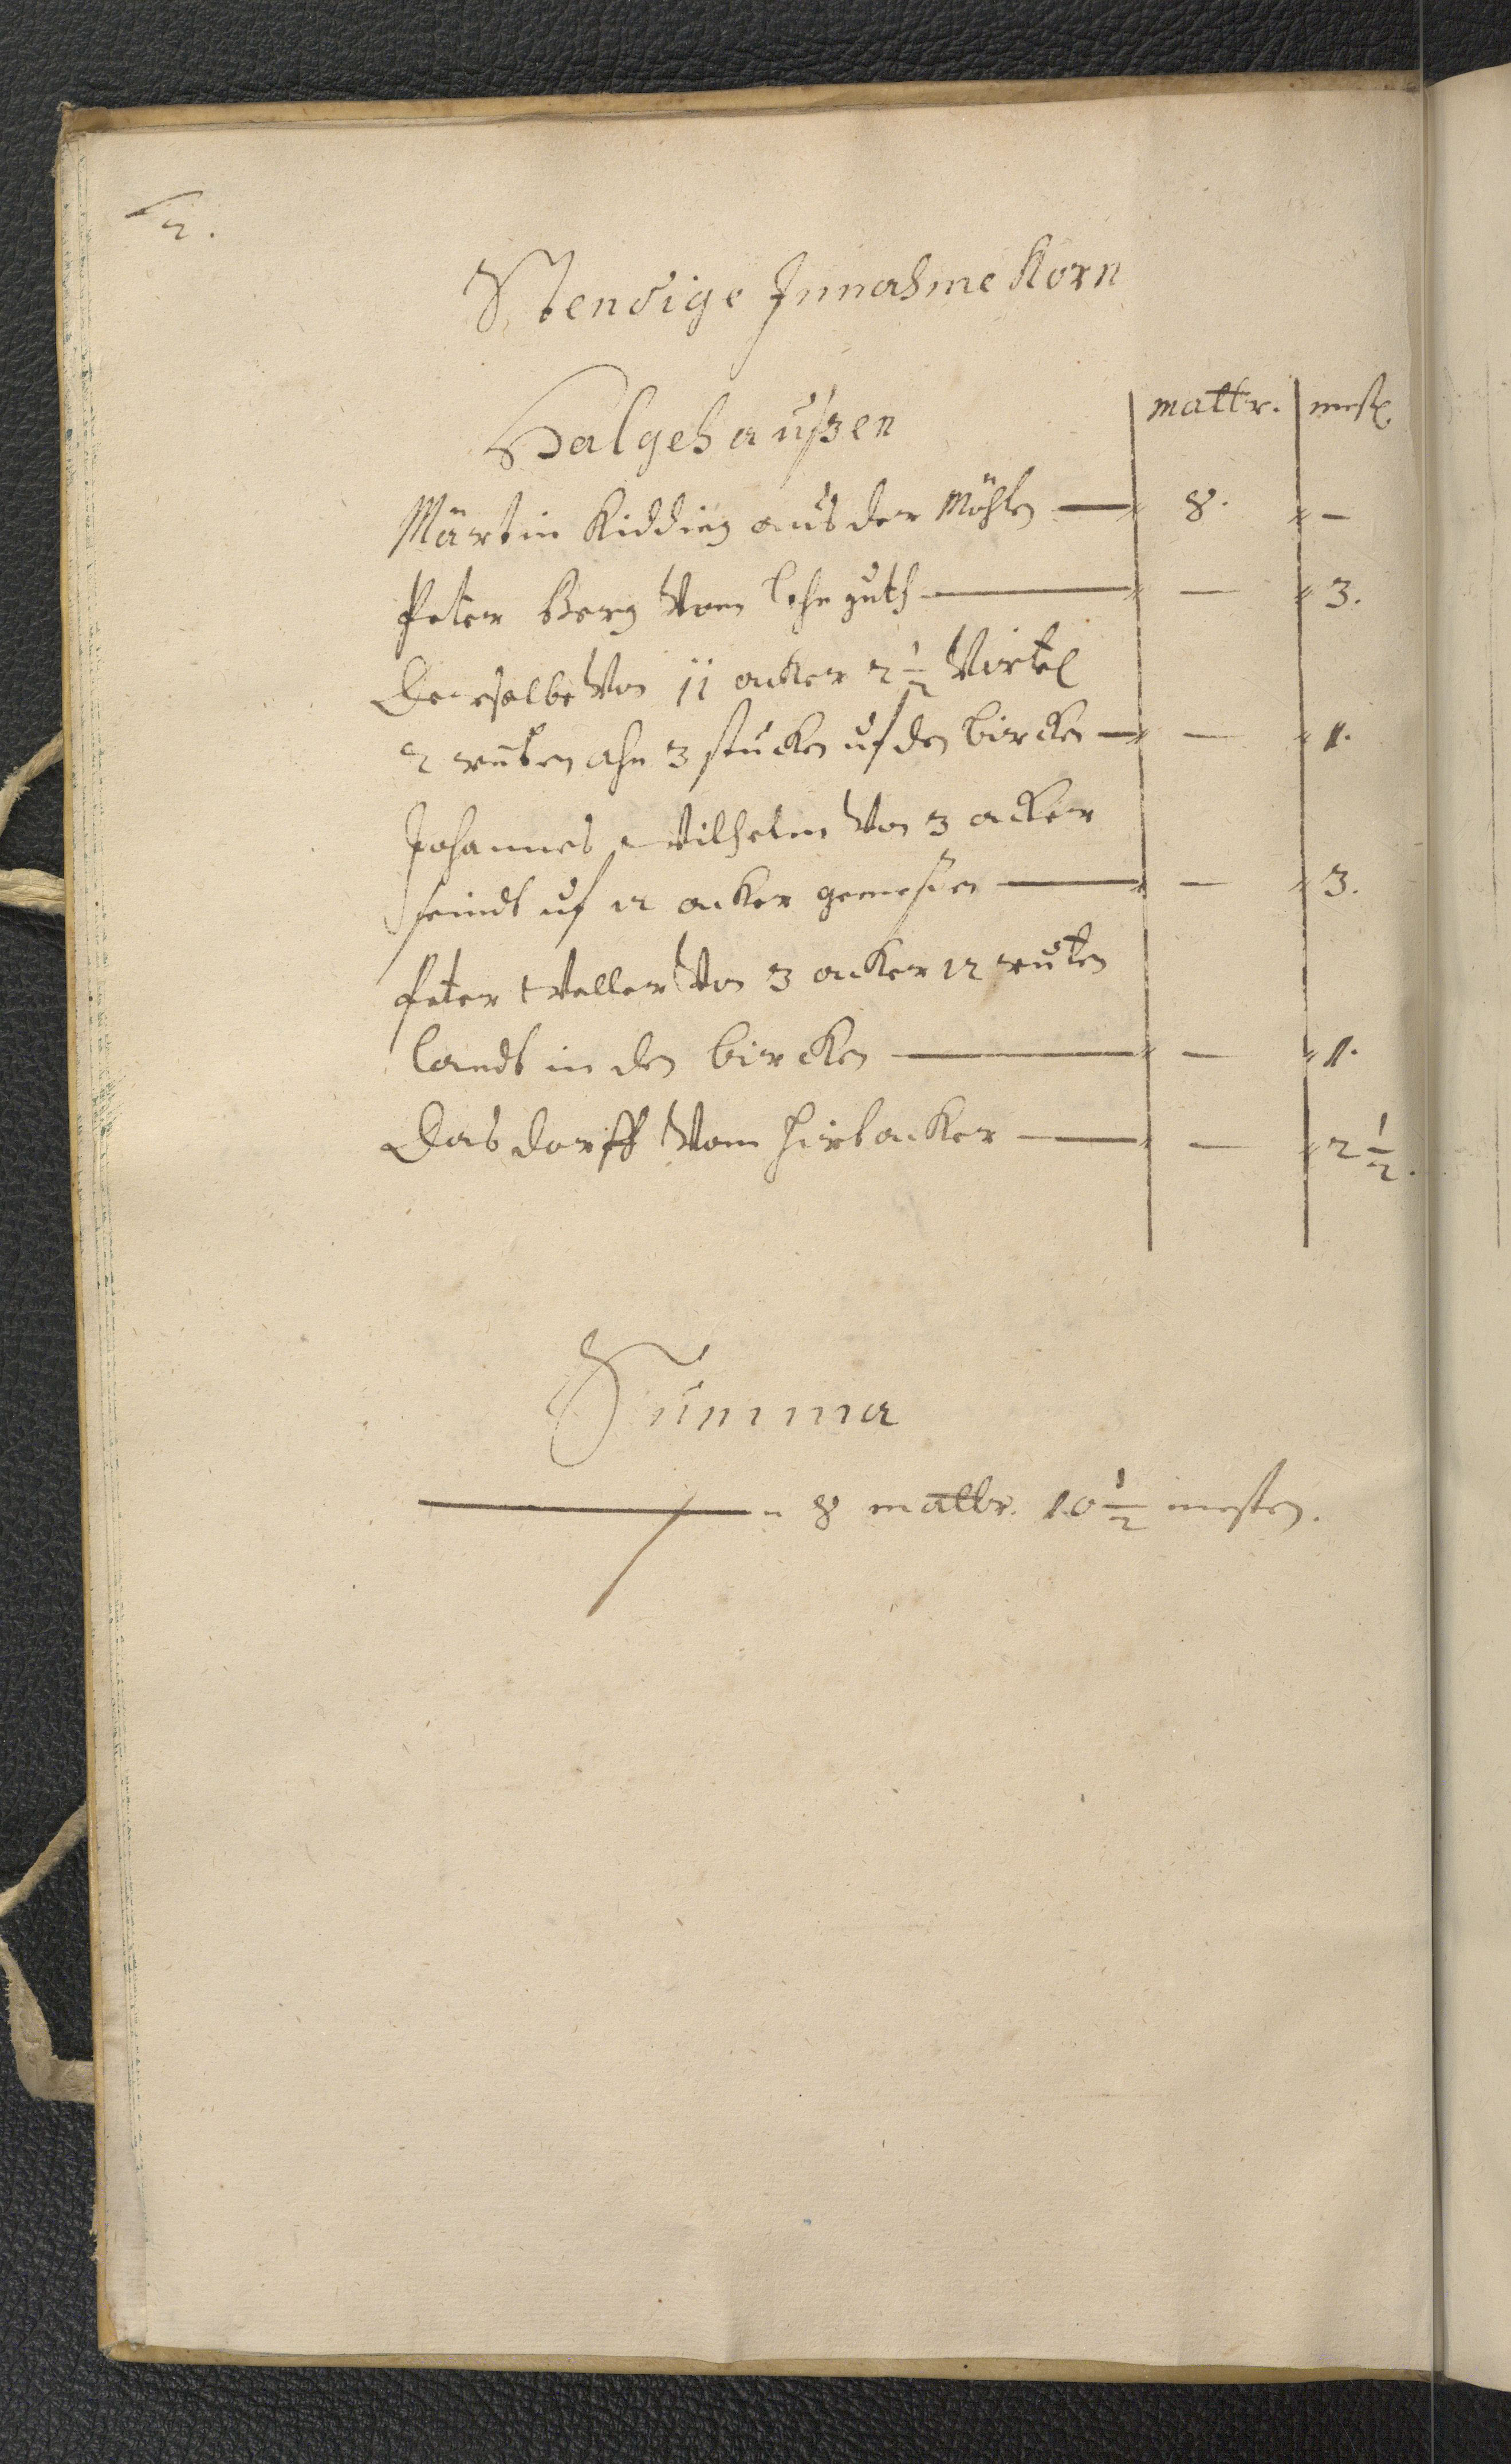 2.
Stendige Innahme Korn
Halgehaußen
maltr. mesten
Märtin Kidding aus der Möhlen — 8. —
Peter Berg Vom lehn guth — — 3.
Derselbe Von 11 acker 2 1/2 Virtel
2 ruten ahn 3 stucken uf den bircken — — 1.
Johannes Wilhelm Von 3 acker
seindt uf 12 acker gemeßen — — 3.
Peter Weller Von 3 acker 12 ruten
landt in den bircken — — 1.
Das dorff Vom hirtacker — — 2 1/2.
Summa
— 8 maltr. 10 1/2 mesten.